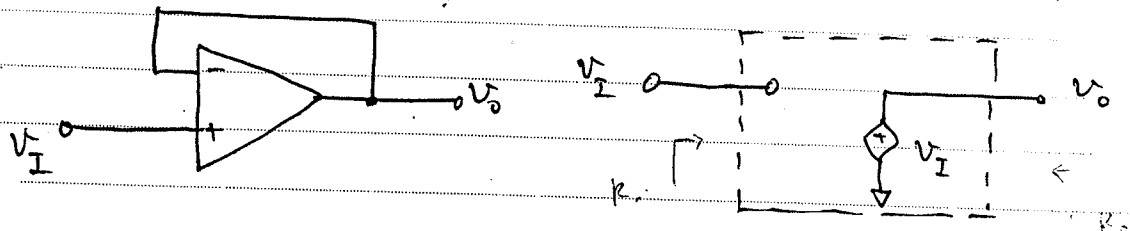 −
+
V_I
V_o
V_I
+
V_I
V_o
R_i
R_o